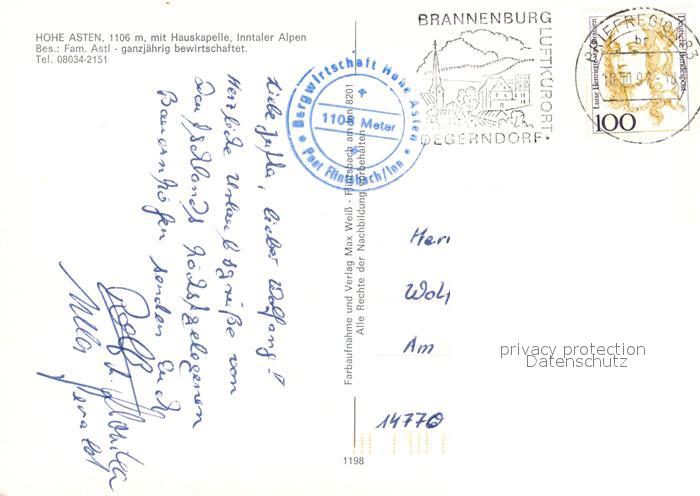 HOHE ASTEN, 1106 m, mit Hauskapelle, Inntaler Alpen
Bes.: Fam. Astl - ganzjährig bewirtschaftet.
Tel. 08034-2151
Liebe Jutta, lieber Wolfgang!
Herzliche Urlaubsgrüße von
Deutschlands höchstgelegenen
Bauernhöfen senden Euch
Rolf u. Monika
Bergwirtschaft Hohe Asten
1106 Meter
Post Flintsbach/Inn
Farbaufnahme und Verlag Max Weiß - Flintsbach am Inn 8201
Alle Rechte der Nachbildung vorbehalten
1198
BRANNENBURG
LUFTKURORT
DEGERNDORF
BRIEFREGION 83
Deutsche Bundespost
100
Herr
Wolf
Am
14770
privacy protection
Datenschutz